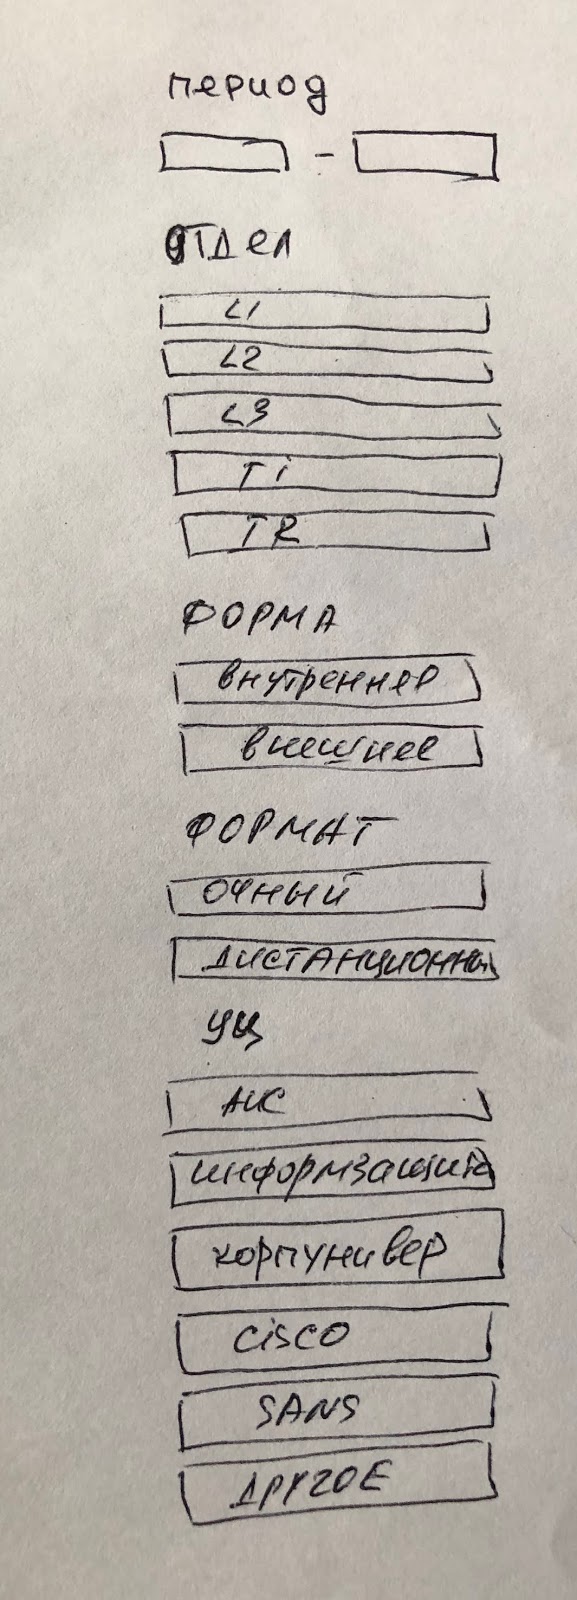 период
-
ОТДЕЛ
L1
L2
L3
Ti
TR
ФОРМА
внутреннее
внешнее
ФОРМАТ
ОЧНЫЙ
ДИСТАНЦИОННЫ
УЦ
АИС
информзащита
корпунивер
CiSCO
SANS
ДРУГОЕ